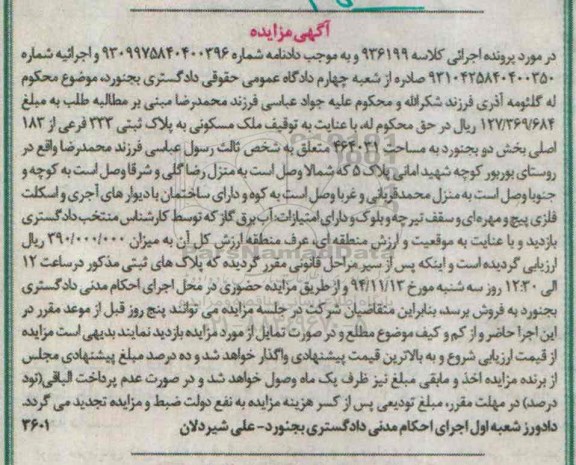 آگهی مزایده
در مورد پرونده اجرائی کلاسه ۹۳۶۱۹۹ و به موجب دادنامه شماره ۹۳۰۹۹۷۵۸۴۰۴۰۰۳۹۶ و اجرائیه شماره
۹۳۱۰۴۲۵۸۴۰۴۰۰۳۵۰ صادره از شعبه چهارم دادگاه عمومی حقوقی دادگستری بجنورد، موضوع محکوم
له گلثومه آذری فرزند شکرالله و محکوم علیه جواد عباسی فرزند محمدرضا مبنی بر مطالبه طلب به مبلغ
۱۲۷/۳۶۹/۶۸۴ ریال در حق محکوم له، با عنایت به توقیف ملک مسکونی به پلاک ثبتی ۳۳۳ فرعی از ۱۸۳
اصلی بخش دو بجنورد به مساحت ۴۶۴۰۳۱ متعلق به شخص ثالث رسول عباسی فرزند محمدرضا واقع در
روستای بوربور کوچه شهید امانی پلاک ۵ که شمالا وصل است به منزل رضا گلی و شرقا وصل است به کوچه و
جنوبا وصل است به منزل محمد قربانی و غربا وصل است به کوه و دارای ساختمان با دیوار های آجری و اسکلت
فلزی پیچ و مهره ای و سقف تیرچه و بلوک و دارای امتیازات: آب برق گاز که توسط کارشناس منتخب دادگستری
بازدید و با عنایت به موقعیت و ارزش منطقه ای، عرف منطقه ارزش کل آن به میزان ۳۹۰/۰۰۰/۰۰۰ ریال
ارزیابی گردیده است و اینکه پس از سیر مراحل قانونی مقرر گردیده که پلاک های ثبتی مذکور در ساعت ۱۲
الی ۱۲:۳۰ روز سه شنبه مورخ ۹۴/۱۱/۱۳ و از طریق مزایده حضوری در محل اجرای احکام مدنی دادگستری
بجنورد به فروش برسد، بنابراین متقاضیان شرکت در جلسه مزایده می توانند پنج روز قبل از موعد مقرر در
این اجرا حاضر و از کم و کیف موضوع مطلع و در صورت تمایل از مورد مزایده بازدید نمایند بدیهی است مزایده
از قیمت ارزیابی شروع و به بالاترین قیمت پیشنهادی واگذار خواهد شد و ده درصد مبلغ پیشنهادی مجلس
از برنده مزایده اخذ و مابقی مبلغ نیز ظرف یک ماه وصول خواهد شد و در صورت عدم پرداخت الباقی(نود
درصد) در مهلت مقرر، مبلغ تودیعی پس از کسر هزینه مزایده به نفع دولت ضبط و مزایده تجدید می گردد.
دادورز شعبه اول اجرای احکام مدنی دادگستری بجنورد- علی شیردلان ۳۶۰۱